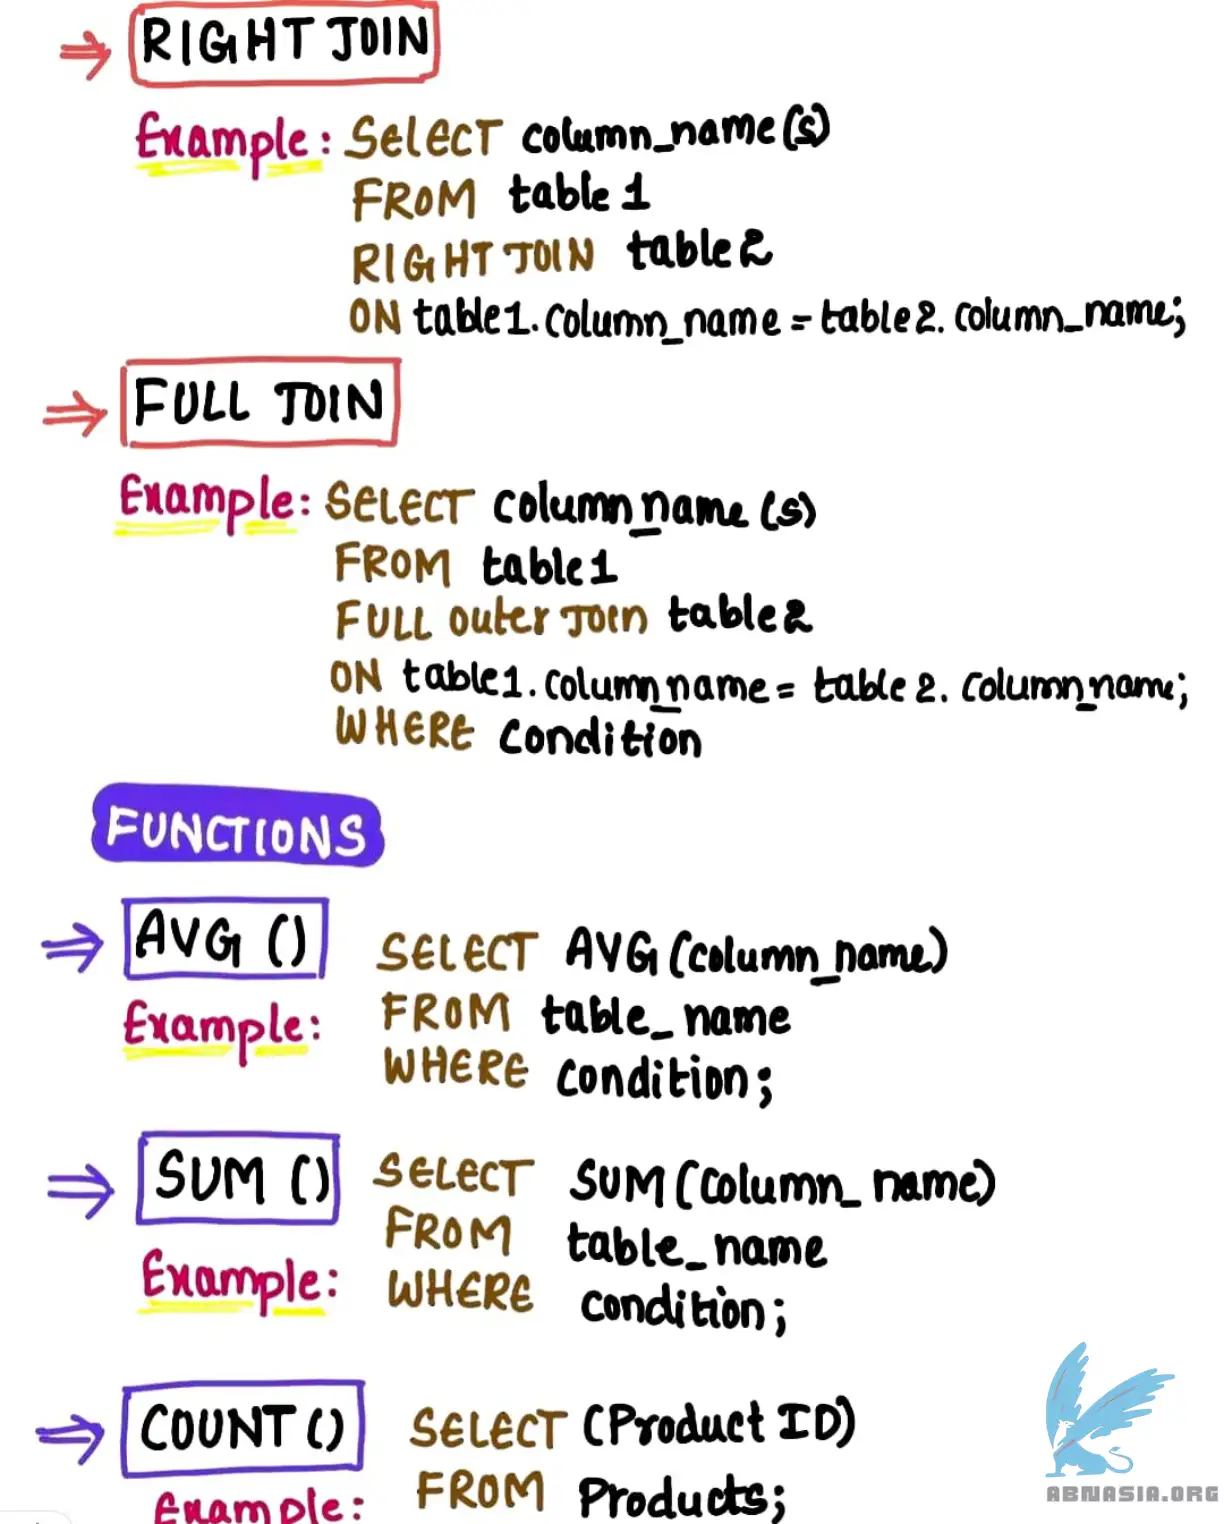 ⇒ RIGHT JOIN
Example: SELECT column_name(s)
FROM table1
RIGHT JOIN table2
ON table1.column_name = table2.column_name;
⇒ FULL JOIN
Example: SELECT column_name(s)
FROM table1
FULL outer Join table2
ON table1.column_name = table2.column_name;
WHERE condition
FUNCTIONS
⇒ AVG () SELECT AVG(column_name)
Example: FROM table_name
WHERE condition;
⇒ SUM () SELECT SUM(column_name)
FROM table_name
Example: WHERE condition;
⇒ COUNT () SELECT (Product ID)
Example: FROM Products;
ABNASIA.ORG